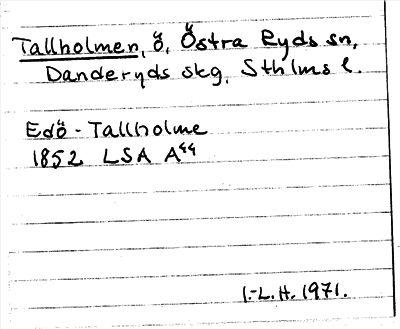 Tallholmen, ö, Östra Ryds sn,
Danderyds skg, Sthlms l.
Edö-Tallholme
1852 LSA A44
I.-L.H. 1971.